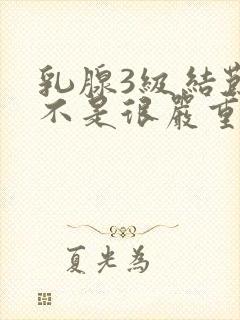 乳腺3級結
不是很嚴重
夏光為